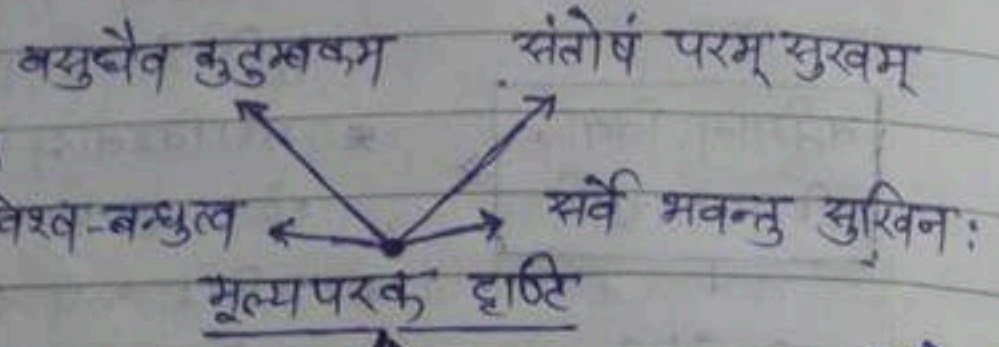 वसुधैव कुटुम्बकम संतोषं परम् सुखम्
विश्व-बन्धुत्व सर्वे भवन्तु सुखिन:
मूल्यपरक दृष्टि